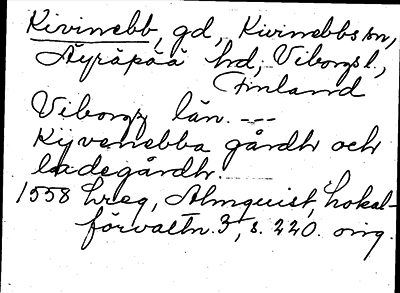 Kivinebb, gd, Kivinebbs sn,
Äyräpää hd, Viborgs l,
Finland
Viborgz län. ---
Kyvenebba gårdh och
ladegårdh.
1558 hreg, Almquist, Lokal-
förvaltn. 3, s. 220. orig.